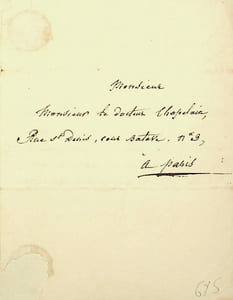 Monsieur
Monsieur le docteur Chapelain,
Rue St Denis, cour Batave. nº 3,
à paris
645